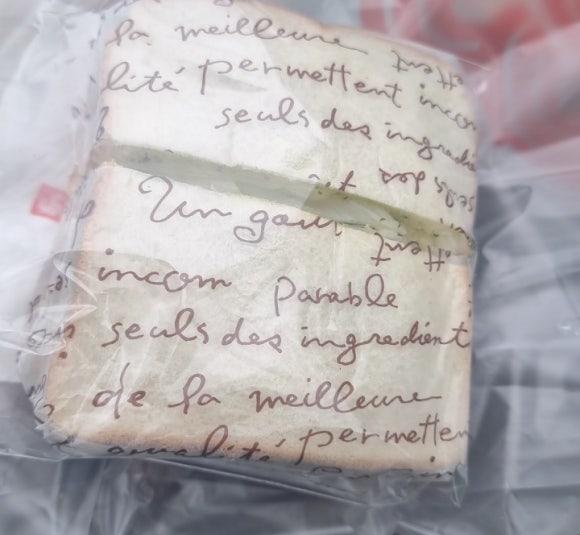 la meilleure
lité permettent incom
seuls des ingredie
Un goût
incom parable
seuls des ingredient
de la meilleure
qualité permetten